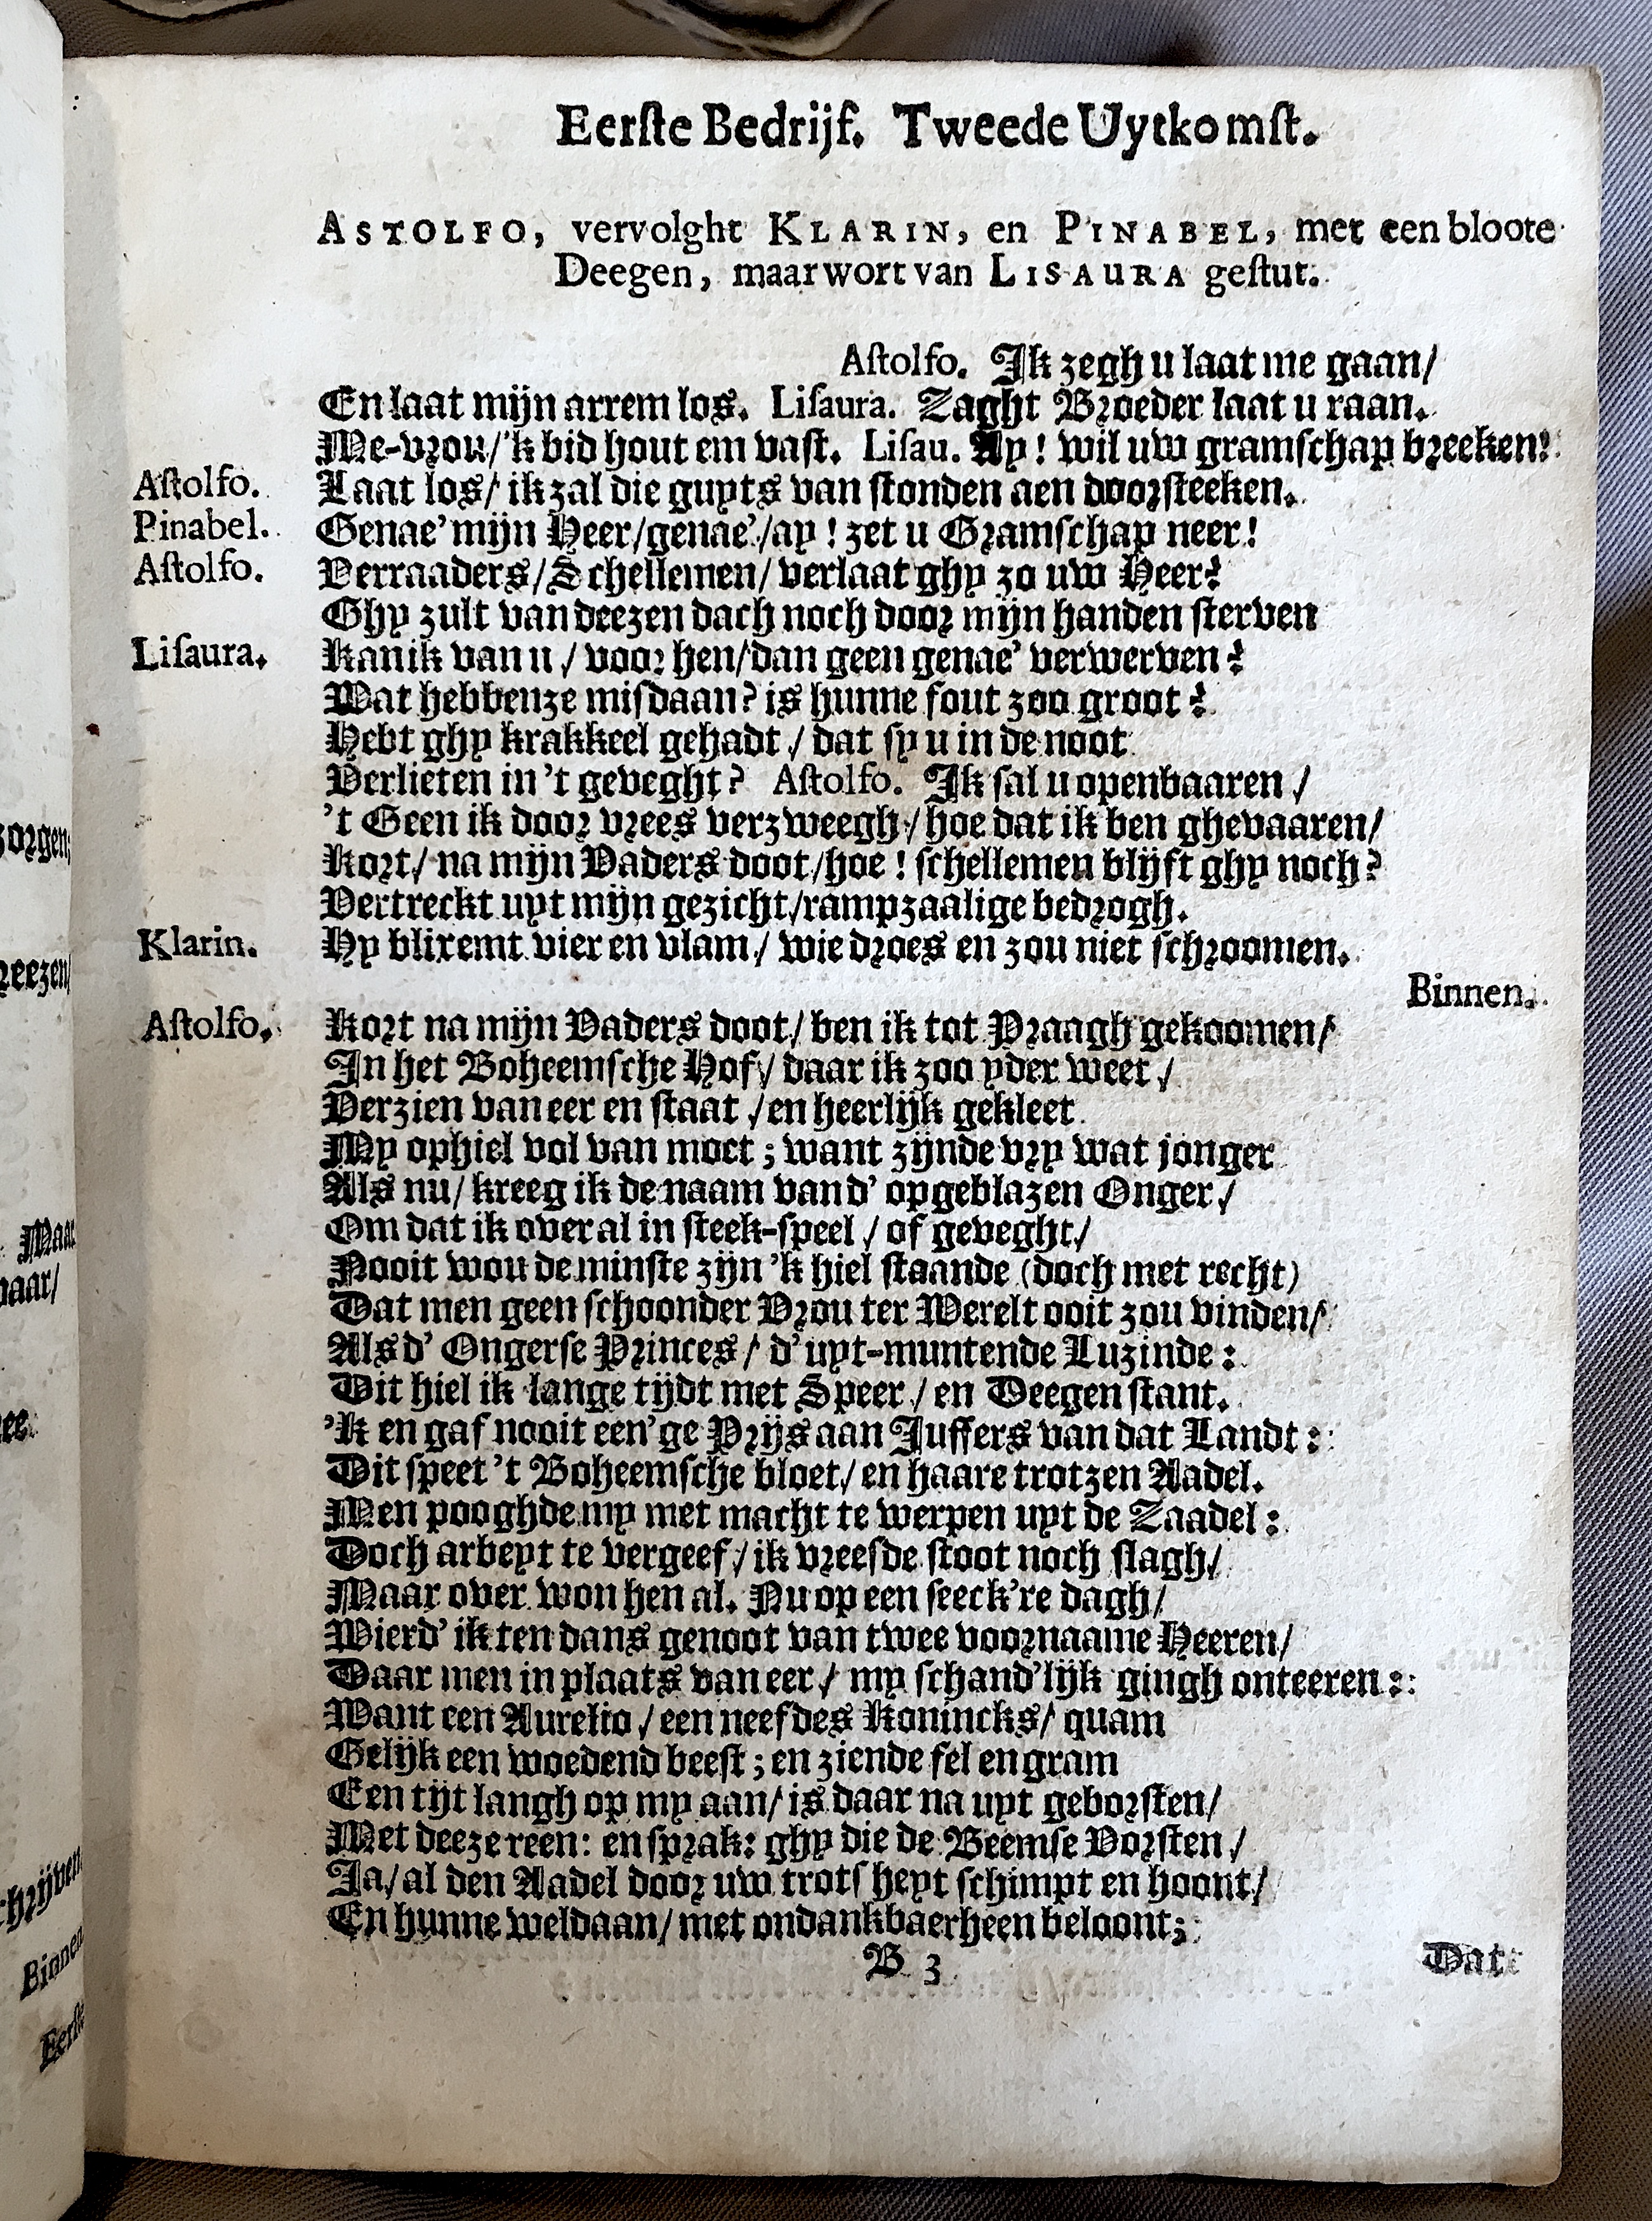 Eerſte Bedrijf. Tweede Uytkomſt.
ASTOLFO, vervolght KLARIN, en PINABEL, met een bloote
Deegen, maar wort van LISAURA geſtut.
Aſtolfo. Ik zegh u laat me gaan/
En laat mijn arrem los. Liſaura. Zaght Broeder laat u raan.
Me-vrou/'k bid hout em vaſt. Liſau. Ay! wil uw gramſchap breeken!
Aſtolfo. Laat los/ ik zal die guyts van ſtonden aen doorſteeken.
Pinabel. Genae' mijn Heer/genae'/ay! zet u Gramſchap neer!
Aſtolfo. Verraaders/Schellemen/ verlaat ghy zo uw Heer?
Ghy zult van deezen dach noch door mijn handen ſterven
Liſaura. Kan ik van u/ voor hen/dan geen genae' verwerven?
Wat hebbenze miſdaan? is hunne fout zoo groot?
Hebt ghy krakkeel gehadt/ dat ſy u in de noot
Verlieten in 't geveght? Aſtolfo. Ik ſal u openbaaren/
't Geen ik door vrees verzweegh/ hoe dat ik ben ghevaaren/
Kort/ na mijn Vaders doot/hoe! ſchellemen blijft ghy noch?
Vertreckt uyt mijn gezicht/rampzaalige bedrogh.
Klarin. Hy blixemt vier en vlam/ wie droes en zou niet ſchroomen.
Binnen.
Aſtolfo. Kort na mijn Vaders doot/ ben ik tot Praagh gekoomen/
In het Boheemſche Hof/ daar ik zoo yder weet/
Verzien van eer en ſtaat/en heerlijk gekleet
My ophiel vol van moet; want zijnde vry wat jonger
Als nu/ kreeg ik de naam van d' opgeblazen Onger/
Om dat ik over al in ſteek-ſpeel/ of geveght/
Nooit wou de minſte zijn 'k hiel ſtaande (doch met recht)
Dat men geen ſchoonder Vrou ter Werelt ooit zou vinden/
Als d' Ongerſe Princes/ d' uyt-muntende Luzinde:
Dit hiel ik lange tijdt met Speer/ en Deegen ſtant.
'k en gaf nooit een'ge Prijs aan Juffers van dat Landt:
Dit ſpeet 't Boheemſche bloet/ en haare trotzen Aadel.
Men pooghde my met macht te werpen uyt de Zaadel:
Doch arbeyt te vergeef/ ik vreeſde ſtoot noch ſlagh/
Maar over won hen al. Nu op een ſeeck're dagh/
Wierd' ik ten dans genoot van twee voornaame Heeren/
Daar men in plaats van eer/ my ſchand'lijk gingh onteeren:
Want een Aurelio/ een neef des Konincks/ quam
Gelijk een woedend beeſt; en ziende fel en gram
Een tijt langh op my aan/ is daar na uyt geborſten/
Met deeze reen: en ſprak: ghy die de Beemſe Vorſten/
Ja/ al den Aadel door uw trotſheyt ſchimpt en hoont/
En hunne weldaan/ met ondankbaerheen beloont;
B 3
Dat
zorgen;
reezen/
Maar
baar/
ee.
chrijven
Binnen
Eerſte